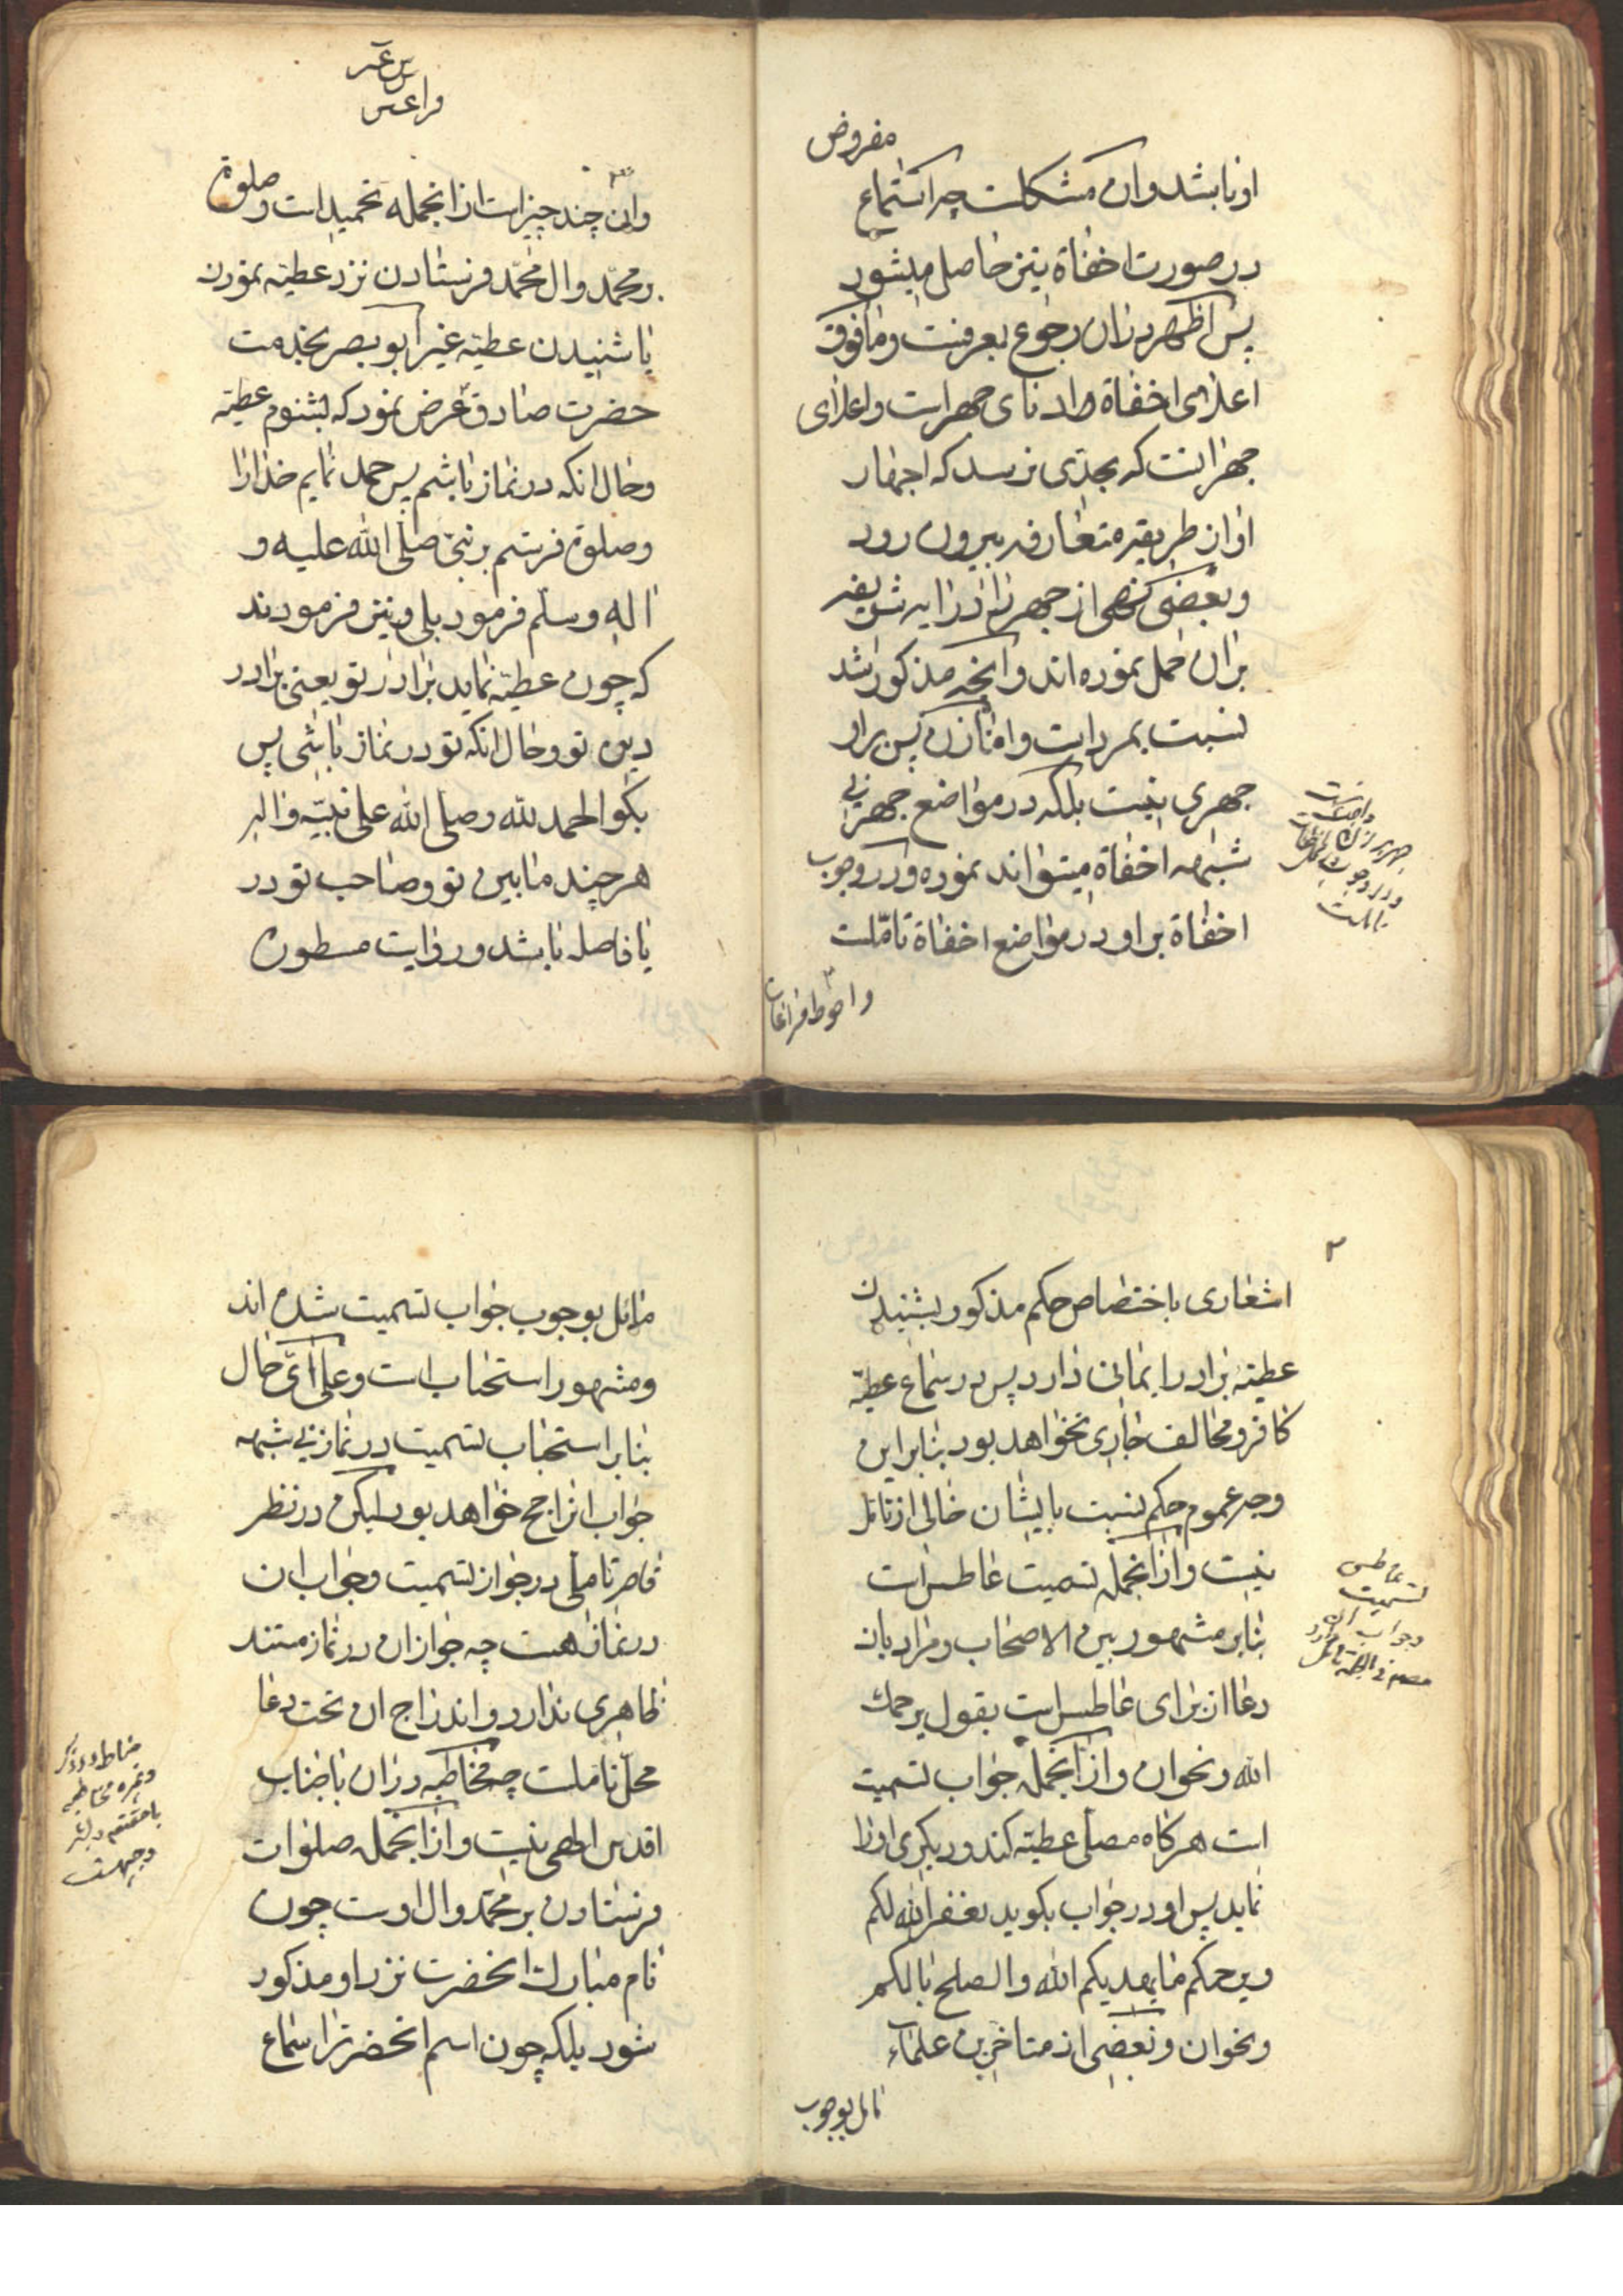 مفروض
او باشد و ان مشکلست چه استماع
در صورت اخفاة نیز حاصل میشود
پس اظهر در ان رجوع بعرفست و مافوق
اعلای اخفاة ادنای جهر است و اعلای
جهر انست که بحدی نرسد که اجهار
او از طریقه متعارفه بیرون رود
و بعضی نهی از جهر را در ایه شریفه
بران حمل نموده اند و انچه مذکور شد
نسبت بمرد است و اما زن پس بر او
جهری نیست بلکه در مواضع جهر بی
شبهه اخفاة میتواند نموده و در وجوب
اخفاة بر او در مواضع اخفاة تاملست
و احوط مراعات
وان چند چیز است از انجمله تحمید است و صلوة
بر محمد و ال محمد فرستادن نزد عطیته نمودن
یا شنیدن عطیته غیر ابو بصیر بخدمت
حضرت صادق عرض نمود که بشنوم عطیته
و حال انکه در نماز باشم پس حمد نمایم خدا را
و صلوة فرستم بر نبی صلی الله علیه و
اله و سلم فرمود بلی و نیز فرمودند
که چون عطیته نماید برادر تو یعنی برادر
دین تو و حال انکه تو در نماز باشی پس
بکو الحمد لله و صلی الله علی نبیه و اله
هر چند مابین تو و صاحب تو در
یا فاصله باشد و روایت مسطوره
اشعاری باختصاص حکم مذکور بشنیدن
عطیته برادر ایمانی دارد پس در سماع عطیته
کافر و مخالف جاری نخواهد بود بنابراین
وجه عموم حکم نسبت بایشان خالی از تامل
نیست و از انجمله تسمیت عاطس است
بنابر مشهور بین الاصحاب و مراد بان
دعا از برای عاطس است بقول یرحمك
الله و نحو ان و از انجمله جواب تسمیت
است هرکاه مصلی عطیته کند و دیکری او را
نماید پس او در جواب بکوید یغفر الله لکم
و یرحمکم مایهدیکم الله و الصلح بالکم
و نحو ان و بعضی از متاخرین علماء
عاطس
تسمیت
و جواب ان
قائل بوجوب
مائل بوجوب جواب تسمیت شده اند
و مشهور استحباب است و علی ای حال
بنابر استحباب تسمیت در نماز بی شبهه
جواب ان راجح خواهد بود لیکن در نظر
قاصر تاملی در جواز تسمیت و جواب ان
در نماز هست چه جواز ان در نماز مستند
ظاهری ندارد و اندراج ان تحت دعا
محل تاملست چه مخاطبه در ان با جناب
اقدس الهی نیست و از انجمله صلوات
فرستادن بر محمد و ال اوست چون
نام مبارك انحضرت نزد او مذکور
شود بلکه چون اسم انحضرت را سماع